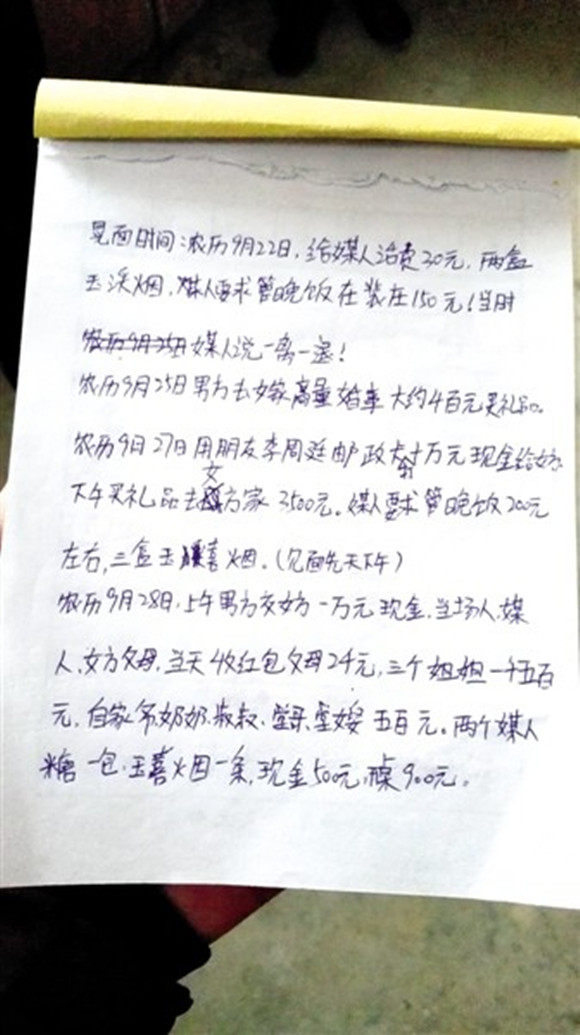 见面时间:农历9月22日,给媒人治费20元,两盒
玉溪烟,媒人要求管晚饭在装在150元!当时
农历9月25日媒人说一离一退!
农历9月25日男方去女家商量婚事大约4百元买礼品。
农历9日27日用朋友李周廷邮政卡十万元现金给女方
下午买礼品去女方家3500元。媒人要求管晚饭200元
左右,三盒玉喜烟。(见面先天下午)
农历9月28日,上午男方交女方一万元现金,当场人,媒
人,女方父母,当天收红包父母2千元,三个姐姐一千五百
元,自家爷奶奶,叔叔,堂哥,堂嫂五百元。两个媒人
糖一包,玉喜烟一条,现金500元,桌900元。